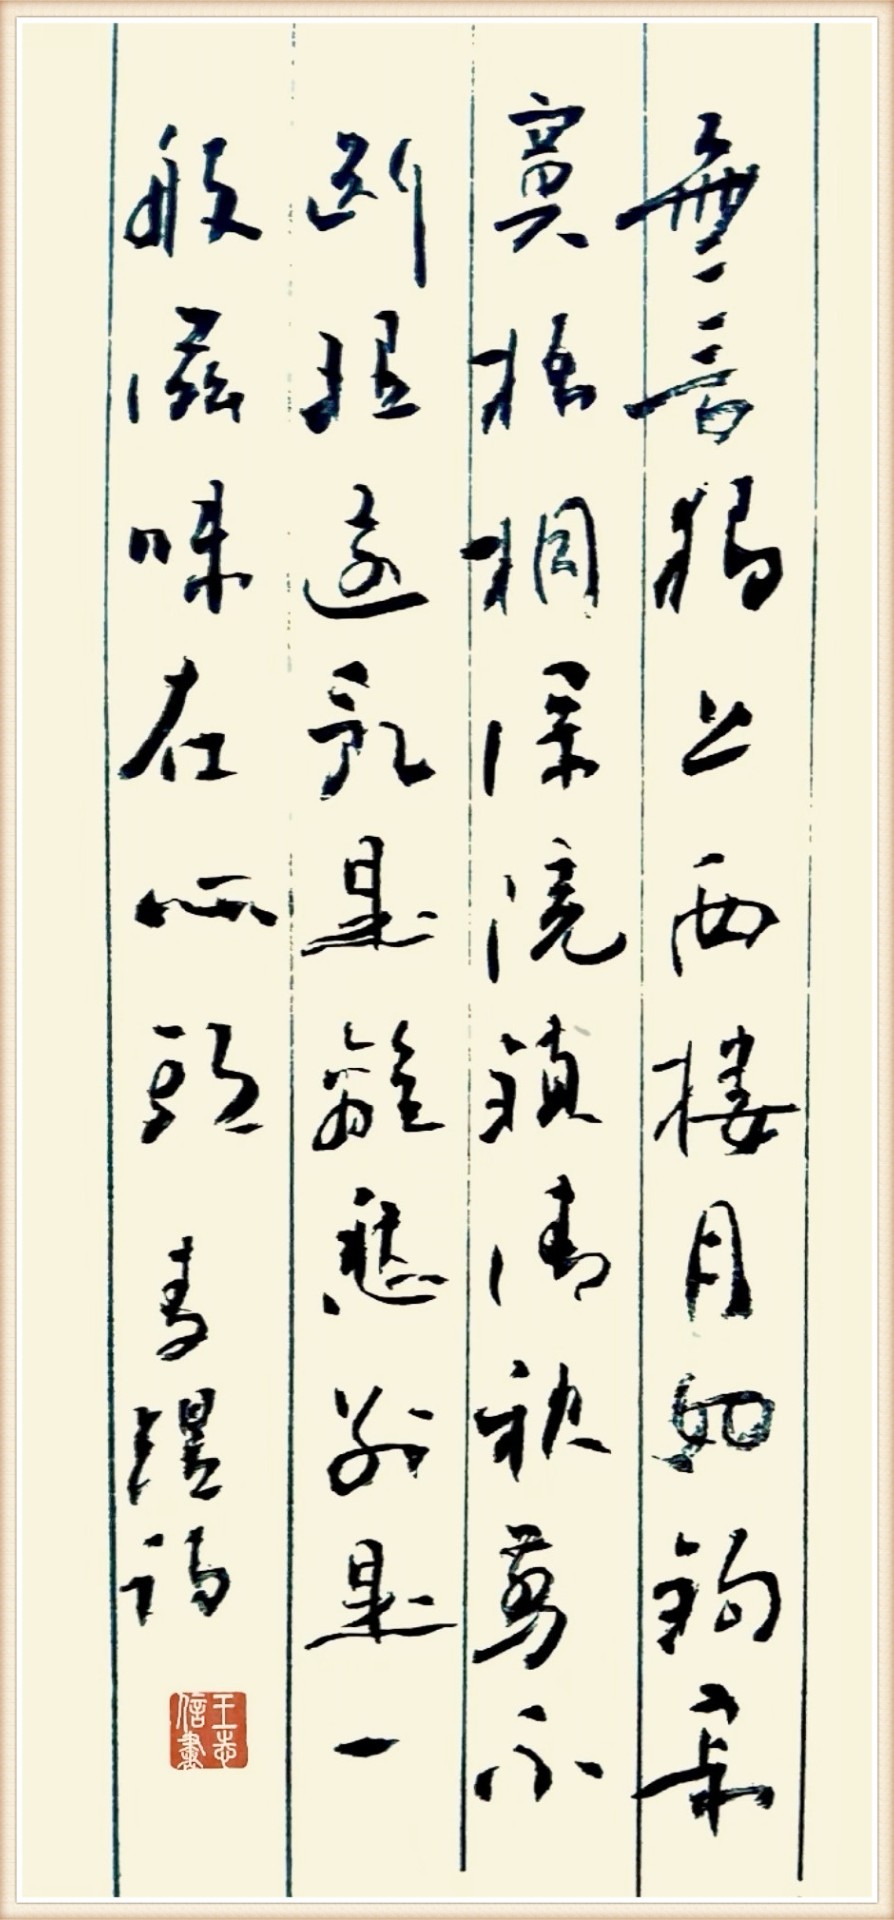 無言獨上西樓月如鉤寂
寞梧桐深院鎖清秋剪不
斷理還亂是離愁別是一
般滋味在心頭 李煜詞
王志信書